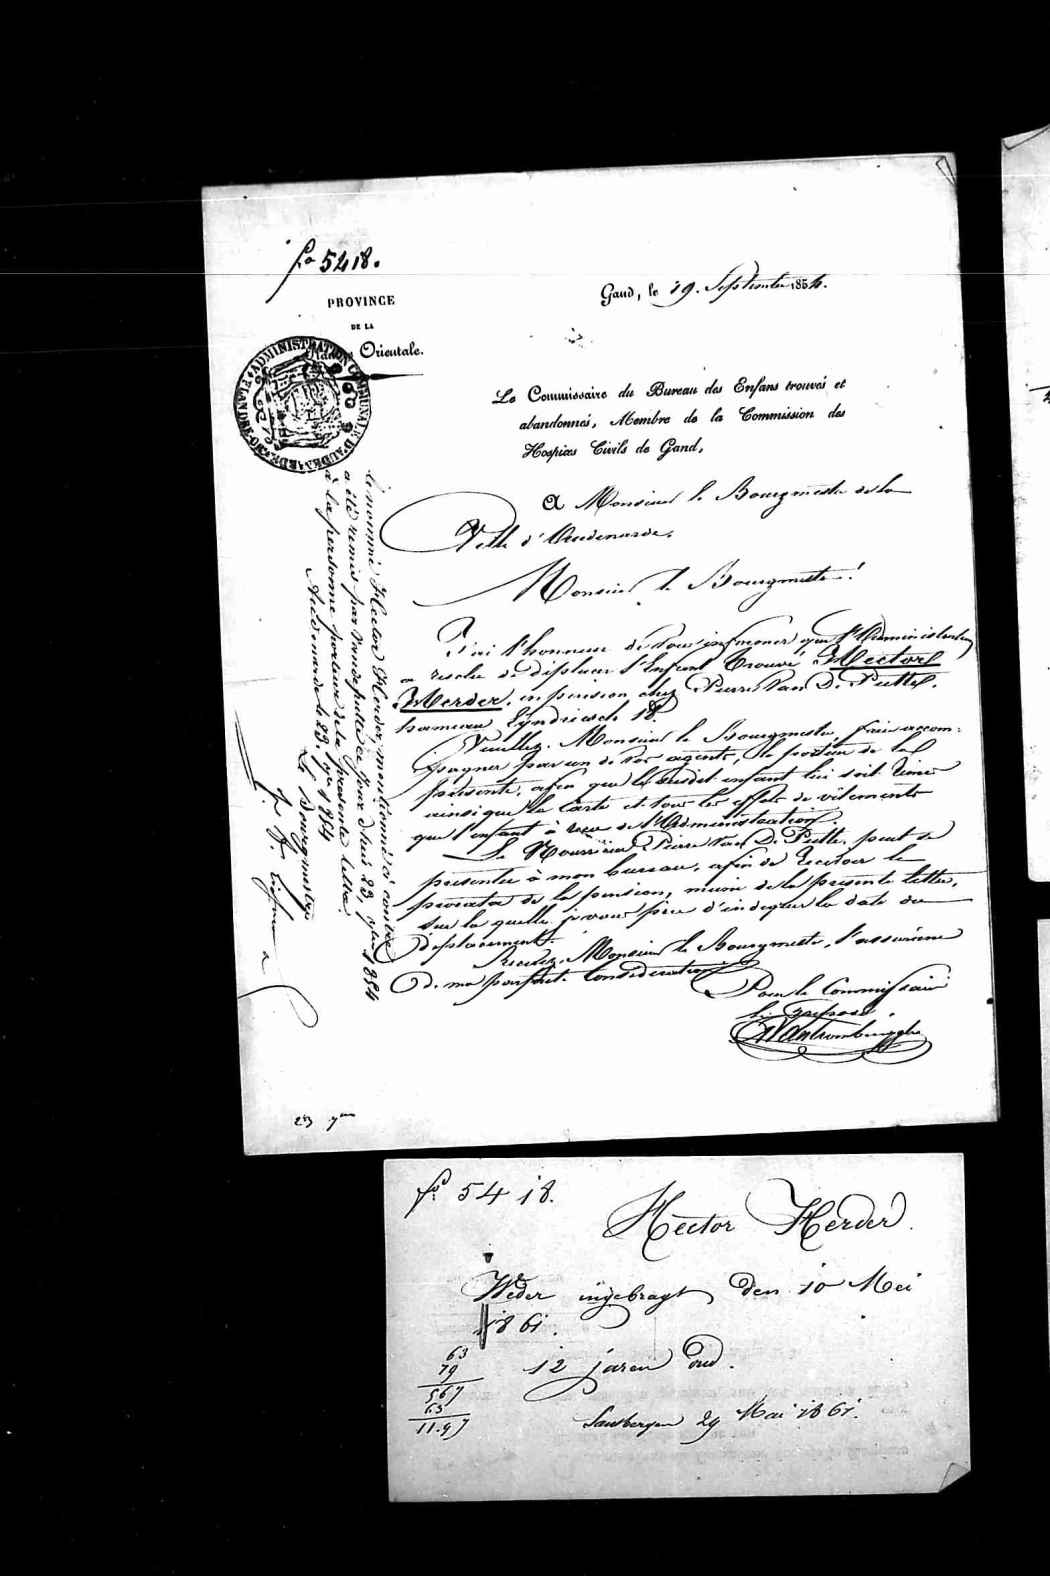 fo 5418.
PROVINCE
DE LA
Orientale.
ADMINISTRATION COMMUNALE D'AUDENARDE
Gand, le 19. Septembre 1854.
Le Commissaire du Bureau des Enfans trouvés et
abandonnés, Membre de la Commission des
Hospices Civils de Gand,
A Monsieur le Bourgmestre de la
Ville d'Audenarde.
Monsieur le Bourgmestre!
J'ai l'honneur de vous informer que l'Administration
a résolu de déplacer l'Enfant Trouvé Hector
Herder, en pension chez Pierre Van De Putte,
hameau Eyndriesch 18.
Veuillez, Monsieur le Bourgmestre, faire accom-
pagner par un de vos agents, le porteur de la
présente, afin que le susdit enfant lui soit remis
ainsi que la Carte et tous les effets de vêtements
que l'enfant à reçu de l'Administration.
Le Nourricier Pierre Van De Putte, peut se
présenter à mon bureau, afin de recevoir le
prorata de la pension, muni de la présente lettre,
sur la quelle je vous prie d'indiquer la date du
déplacement.
Recevez, Monsieur le Bourgmestre, l'assurance
de ma parfaite Considération
Pour le Commissaire
le préposé,
le nommé Hector Herder, mentionné ci contre
a été remis par Vandeputte ce jour d'hui 23, 7bre 1854
à la personne porteur de la présente lettre
Audenarde le 23. 7bre 1854
Le Bourgmestre
23 7bre
fo 5418.
Hector Herder.
Weder ingebragt den 10 Mei
1861.
12 jaren oud.
29 Mai 1861.
63
19
567
63
11.97